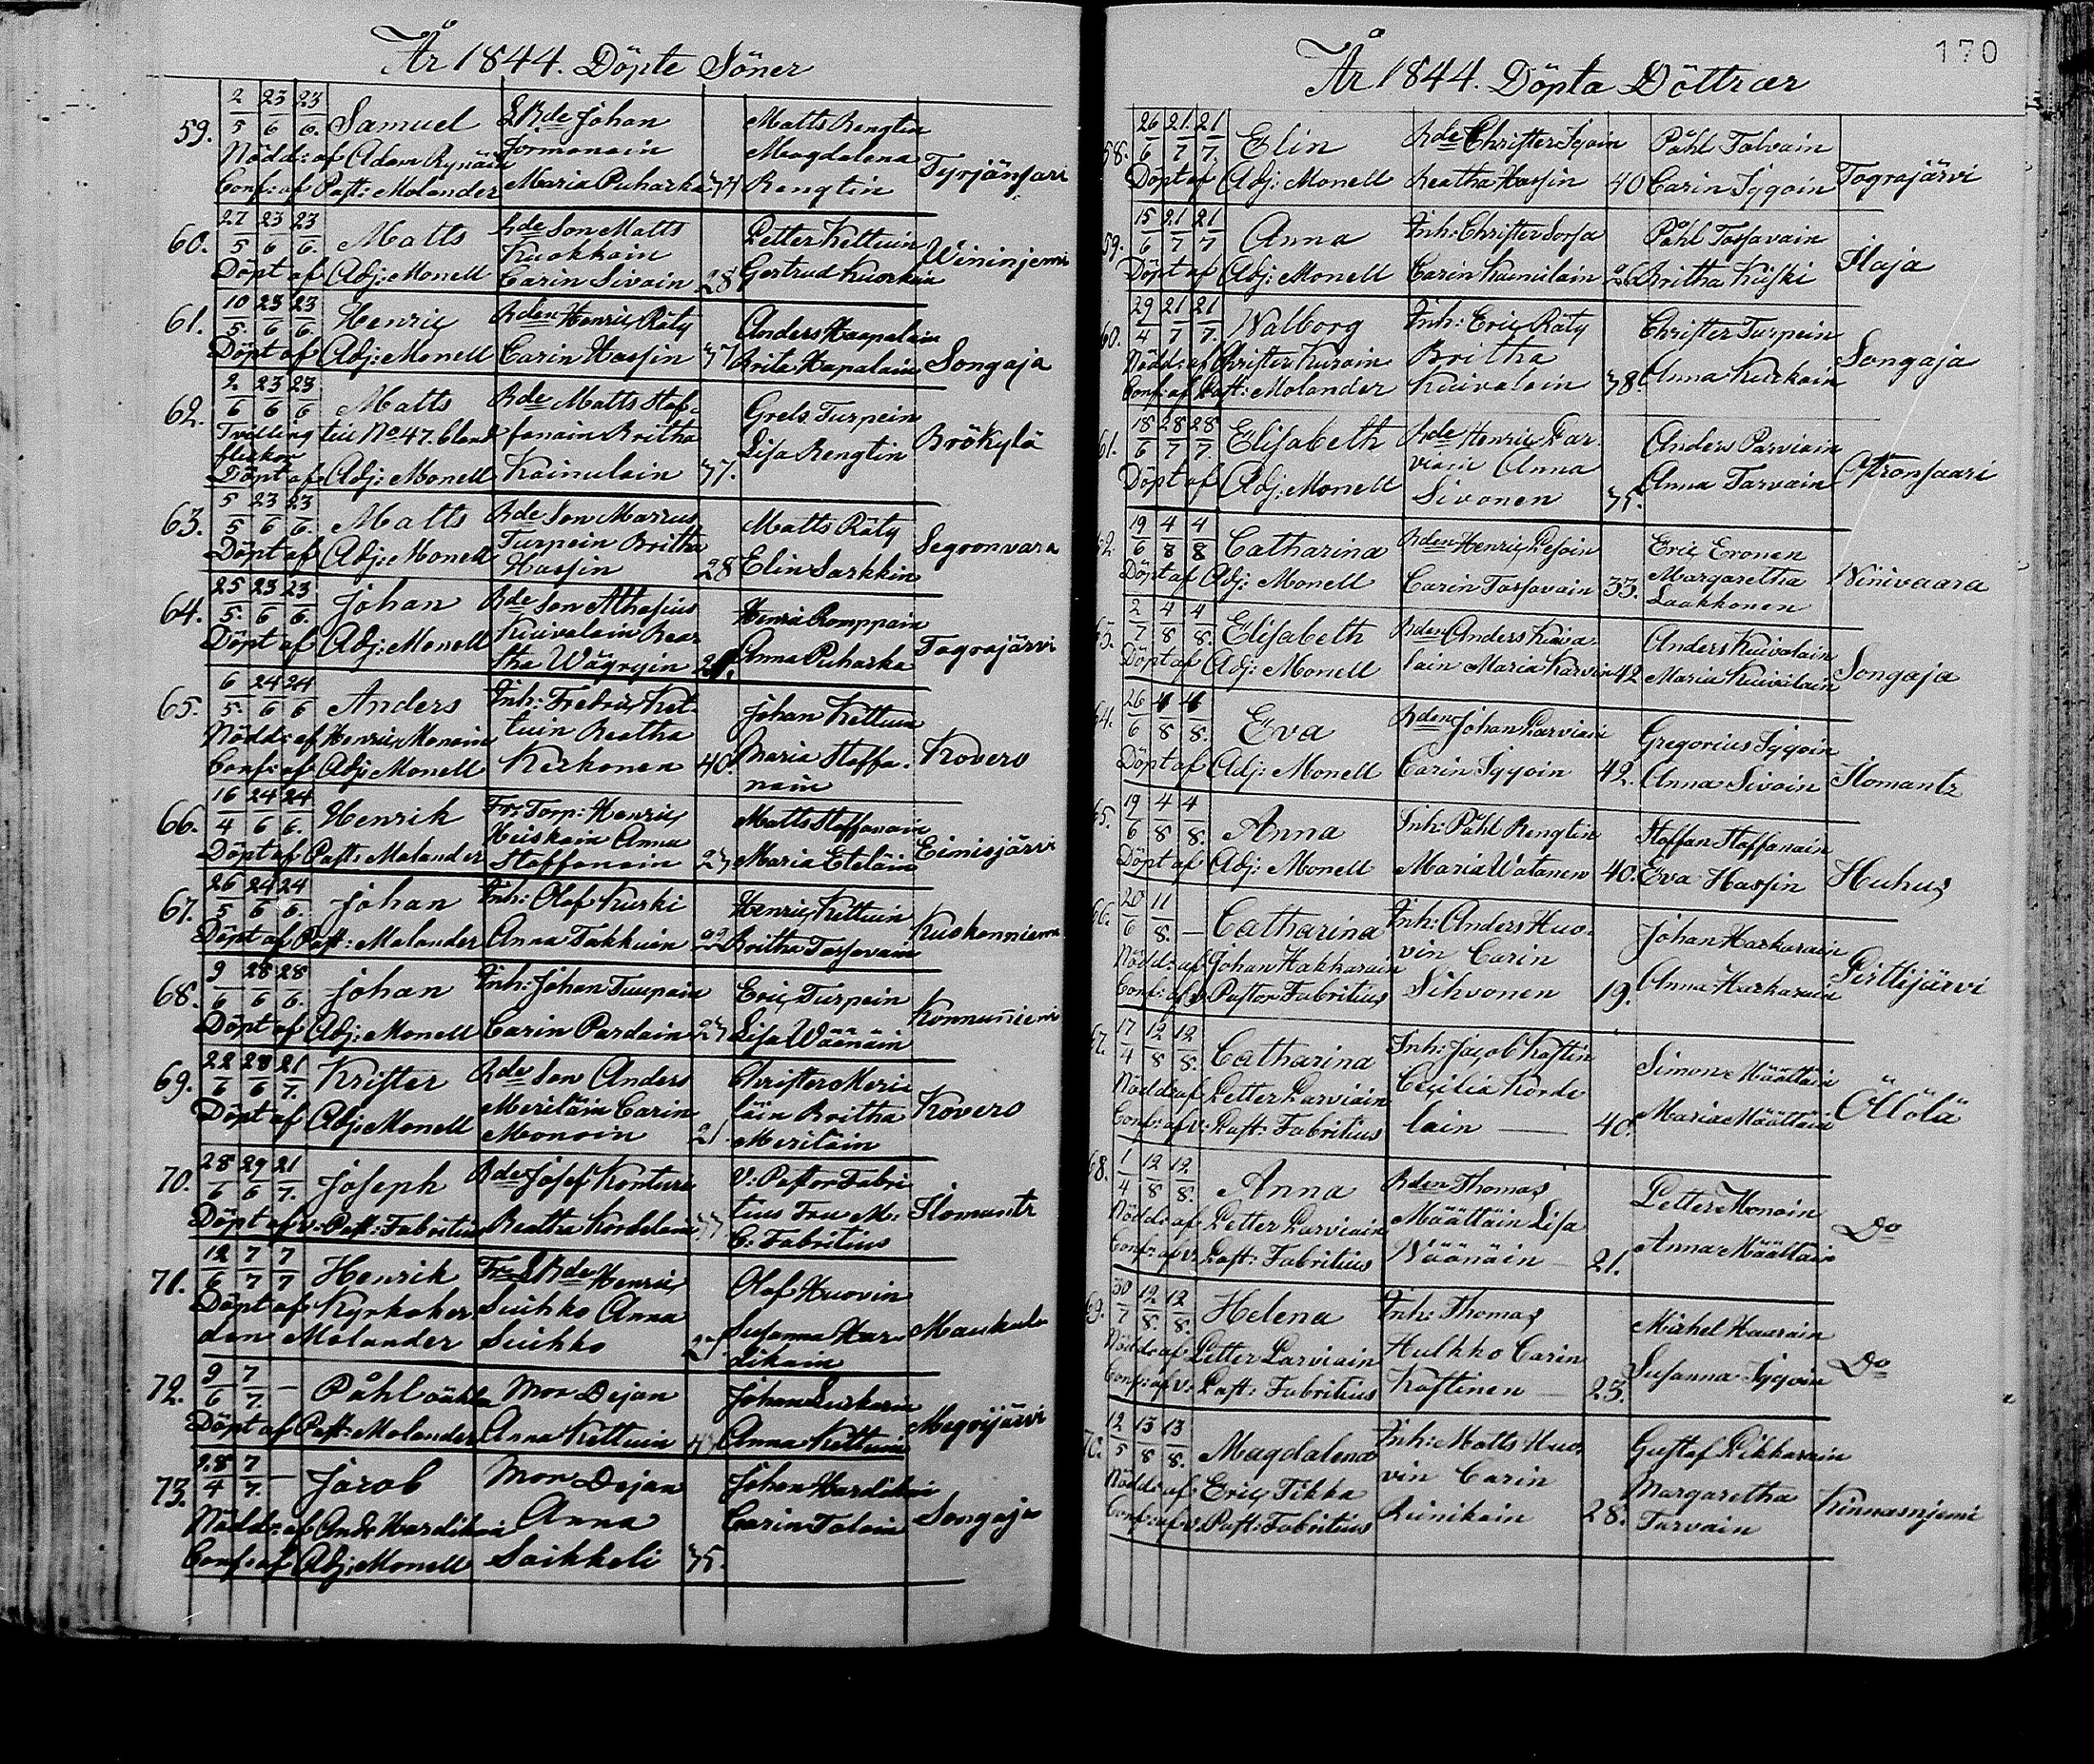 År 1844. Döpte Söner
59. 2/5 23/6 23/6. Samuel LRde Johan Matts Rengtin
Nödd: af Adam Rynäin Jormanain Magdalena Tyrjänsari
Conf: af Past: Molander Maria Puharka Rengtin
60. 27/5 23/6 23/6. Matts Rde Son Matts Petter Kettuin Wininjemi
Kuokkain
Döpt af Adj: Monell Carin Sivain 28 Gertrud
61. 10/5. 23/6 23/6. Henric Rden Henric Räty Anders Haapalain
Döpt af Adj: Monell Carin Hassin 37 Brita Hapalain Songaja
62. 2/6 23/6 23/6 Matts Rde Matts Stef- Grels Turpein
Tvilling till No 47. bland fanain Britha Lisa Rengtin Brökylä
flickor
Döpt af Adj: Monell Kainulain 37.
63. 5/5 23/6 23/6. Matts Rde Son Marcus Matts Räty Segoonvara
Turpein Britha
Döpt af Adj: Monell Hassin 28 Elin Sarkkin
64. 25/5. 23/6 23/6. Johan Rde Son Athasius Henric Romppain
Döpt af Adj: Monell Kuivalain Bea- Anna Puharka Tograjärvi
tha Wägryin
65. 6/5. 24/6 24/6 Anders Inh: Fredric Ket- Johan Kettuin
Nödd: af Henric Monoin tuin Beatha
Conf: af Adj: Monell Kerkonen 40. Maria Staffa- Kovero
nain
66. 16/4 24/6 24/6. Henrik Fr: Torp: Henric Matts Staffanain
Heiskain Anna Eimisjärvi
Döpt af Past: Molander Staffanain 27 Maria Eteläin
67. 26/5 24/6 24/6. Johan Inh: Olof Kurki Henric Kettuin
Döpt af Past: Molander Anna Takkuin 22 Britha Tossavain Kuskonniemi
68. 9/6 28/6 28/6. Johan Inh: Johan Turpain Eric Turpein
Döpt af Adj: Monell Carin Pardain 27 Lisa Wäänäin Konnunniemi
69. 22/6 28/6 21/7. Krister Rde Son Anders Christer Meri-
Meriläin Carin läin Britha Kovero
Döpt af Adj: Monell Monoin 21 Meriläin
70. 28/6 29/6 21/7. Joseph Rde Josef Konturi V: Pastor Fabri-
tius Fru M: Ilomants
Döpt af v: Past: Fabritius Beatha Kordelain C: Fabritius
71. 12/6 7/7 7/7 Henrik Fr: LRde Henric Olof Huovin
Döpt af Kyrkoher- Suihko Anna Susanna Har- Maukula
den Molander Suihko 27. dikain
72. 9/6 7/7. — Påhl oäkta Mor Dejan Johan
Döpt af Past: Molander Anna Kettuin Anna Kettuin Megrijärvi
73. 28/4 7/7. — Jacob Mor Dejan Johan Hardikain
Nödd: af And: Hardikain Anna Carin Tolain Songaja
Conf: af Adj: Monell Saikkeli 35.
170
År 1844. Döpta Döttrar
58. 26/6 21/7 21/7. Elin Rde Christer Igoin Påhl Talvain
Döpt af Adj: Monell Beatha Hassin 40 Carin Iggoin Tograjärvi
59. 15/6 21/7 21/7 Anna Inh: Christer Sorsa Påhl Tossavain
Döpt af Adj: Monell Carin Kainulain 26 Britha Kiiski Ilaja
60. 29/4 21/7 21/7. Walborg Inh: Eric Räty Christer Turpein
Nödd: af Christer Kurain Britha Songaja
Conf: af Past: Molander Kuivalain 38. Anna Kurkain
61. 18/6 28/7 28/7. Elisabeth Rde Henric Par- Anders Parviain
viain Anna
Döpt af Adj: Monell Sivonen 35. Anna Tarvain Ottronsaari
62. 19/6 4/8 4/8 Catharina Rden Henric Lesoin Eric Eronen
Margaretha
Döpt af Adj: Monell Carin Tossavain 33. Laakkonen Winivaara
63. 2/7 4/8 4/8. Elisabeth Rden Anders Kuiva- Anders Kuivalain
Döpt af Adj: Monell lain Maria Karvin 42 Maria Kuivalain Songaja
64. 26/6 4/8 4/8. Eva Rden Johan Parviain Gregorius Iggoin
Döpt af Adj: Monell Carin Iggoin 42. Anna Sivoin Ilomantz
65. 19/6 4/8 4/8. Anna Inh: Påhl Rengtin Staffan Staffanain
Döpt af Adj: Monell Maria Watanen 40. Eva Hassin Huhus
66. 20/6 11/8. — Catharina Inh: Anders Huo- Johan Harkarain
Nödd: af Johan Hakkarain vin Carin
Conf: af v. Pastor Fabritius Sihvonen 19. Anna Harkarain Pirttijärvi
67. 17/4 12/8 12/8. Catharina Inh: Jacob Kastin Simon Määttäin
Nödd: af Petter Parviain Cecilia Korde-
Conf: af v: Past: Fabritius lain — 40. Maria Määttäin Öllölä
68. 1/4 12/8 12/8. Anna Rden Thomas Petter Monoin
Nödd: af Petter Parviain Määttäin Lisa Do
Conf: af v: Past: Fabritius Wäänäin — 21. Anna Määttäin
69. 30/7 12/8. 12/8. Helena Inh: Thomas Michel Haurain
Nödd: af Petter Parviain Hulkko Carin
Conf: af v: Past: Fabritius Kastinen — 23. Susanna Iggoin Do
70. 12/5 13/8 13/8. Magdalena Inh: Matts Huo- Gustaf Pikkarain
Nödd: af: Eric Tikka vin Carin Margaretha
Conf: af v. Past: Fabritius Reinikain 28. Tarvain Kinnasnjemi